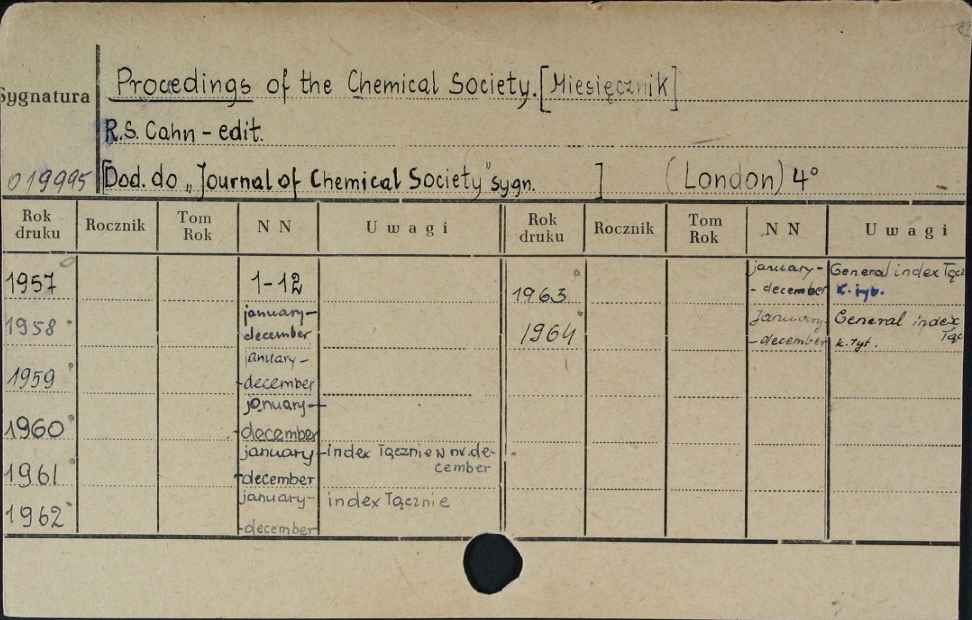 Procedings of the Chemical Society. [Miesięcznik]
Sygnatura
R.S. Cahn - edit.
019995 [Dod. do „Journal of Chemical Society" sygn. ] (London) 4°
Rok druku Rocznik Tom Rok NN Uwagi Rok druku Rocznik Tom Rok NN Uwagi
1957 1-12 1963 january-
- december General index Łącz
k. tyt.
1958 january-
december 1964 January
- december General index Łąc
k. tyt.
1959 january-
- december
1960 january-
- december
1961 january-
december index Łącznie w nr. de-
cember
1962 january-
- december index Łącznie